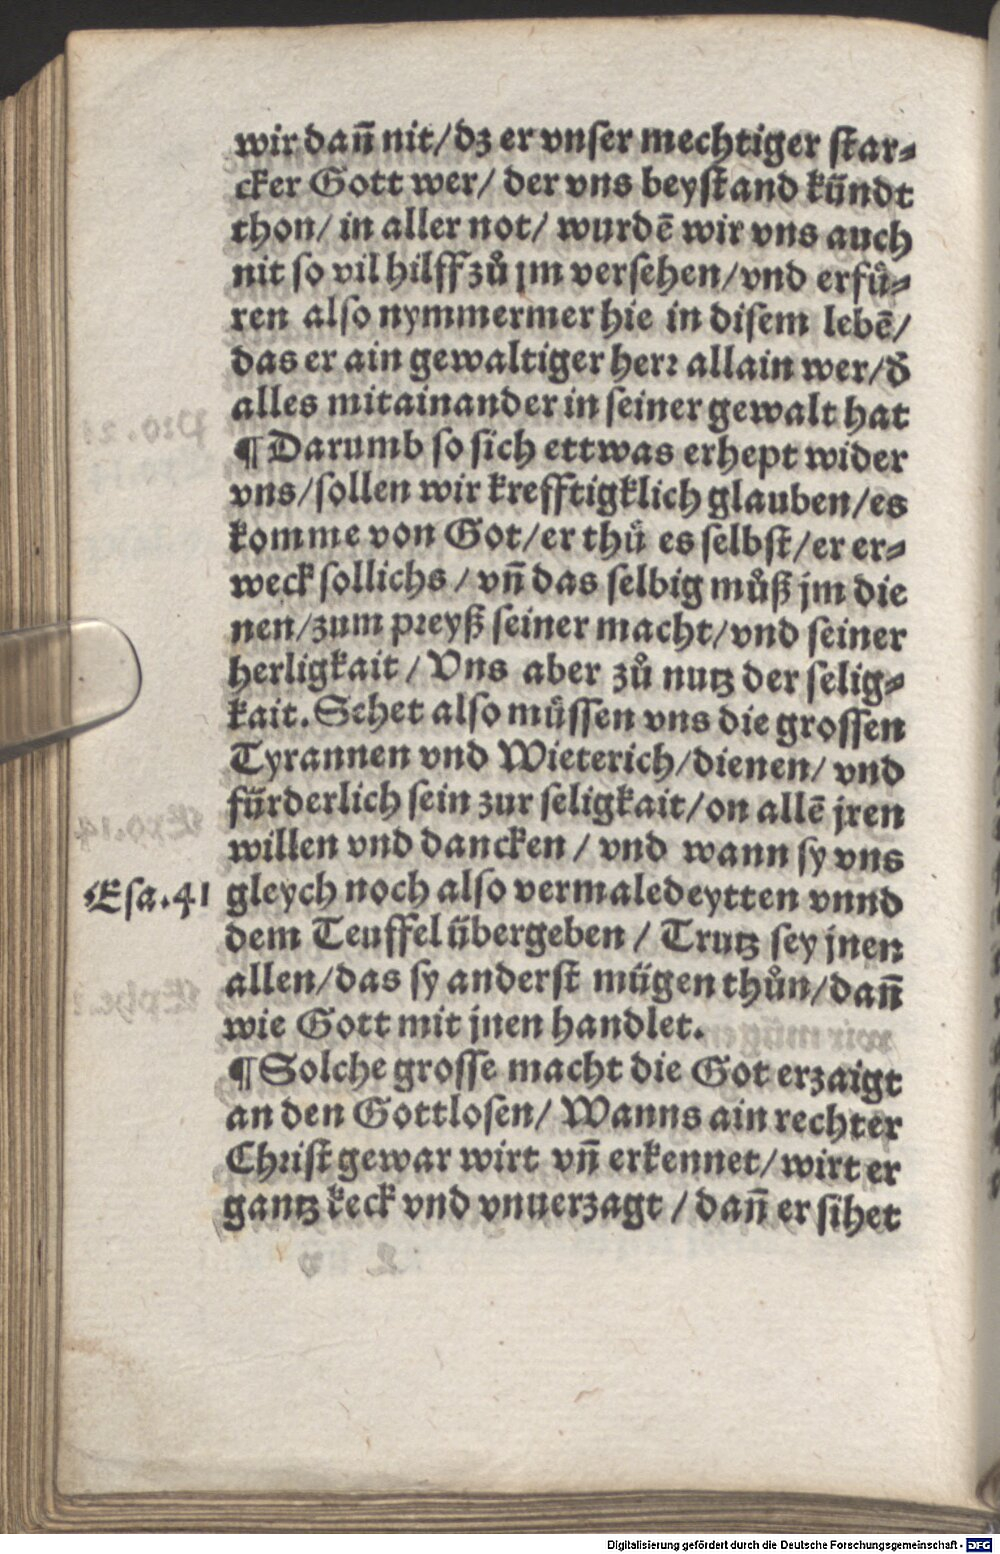 wir dañ nit/ dz er vnser mechtiger star⸗
cker Gott wer/ der vns beystand kündt
thon/ in aller not/ wurdē wir vns auch
nit so vil hilff zů jm versehen/ vnd erfü⸗
ren also nymmermer hie in disem lebē/
das er ain gewaltiger herꝛ allain wer/ d̄
alles mitainander in seiner gewalt hat
¶ Darumb so sich ettwas erhept wider
vns/ sollen wir krefftigklich glauben/ es
komme von Got/ er thü es selbst/ er er⸗
weck sollichs / vñ das selbig můß jm die
nen/ zum pꝛeyß seiner macht/ vnd seiner
herligkait / Vns aber zů nutz der selig⸗
kait. Sehet also müssen vns die grossen
Tyrannen vnd Wieterich/ dienen/ vnd
fürderlich sein zur seligkait/ on allē jren
willen vnd dancken / vnd wann sy vns
Esa. 41 gleych noch also vermaledeytten vnnd
dem Teuffel übergeben / Trutz sey jnen
allen/ das sy anderst mügen thůn/ dañ
wie Gott mit jnen handlet.
¶ Solche grosse macht die Got erzaigt
an den Gottlosen/ Wanns ain rechter
Chꝛist gewar wirt vñ erkennet/ wirt er
gantz keck vnd vnuerzagt / dañ er sihet
Digitalisierung gefördert durch die Deutsche Forschungsgemeinschaft - DFG